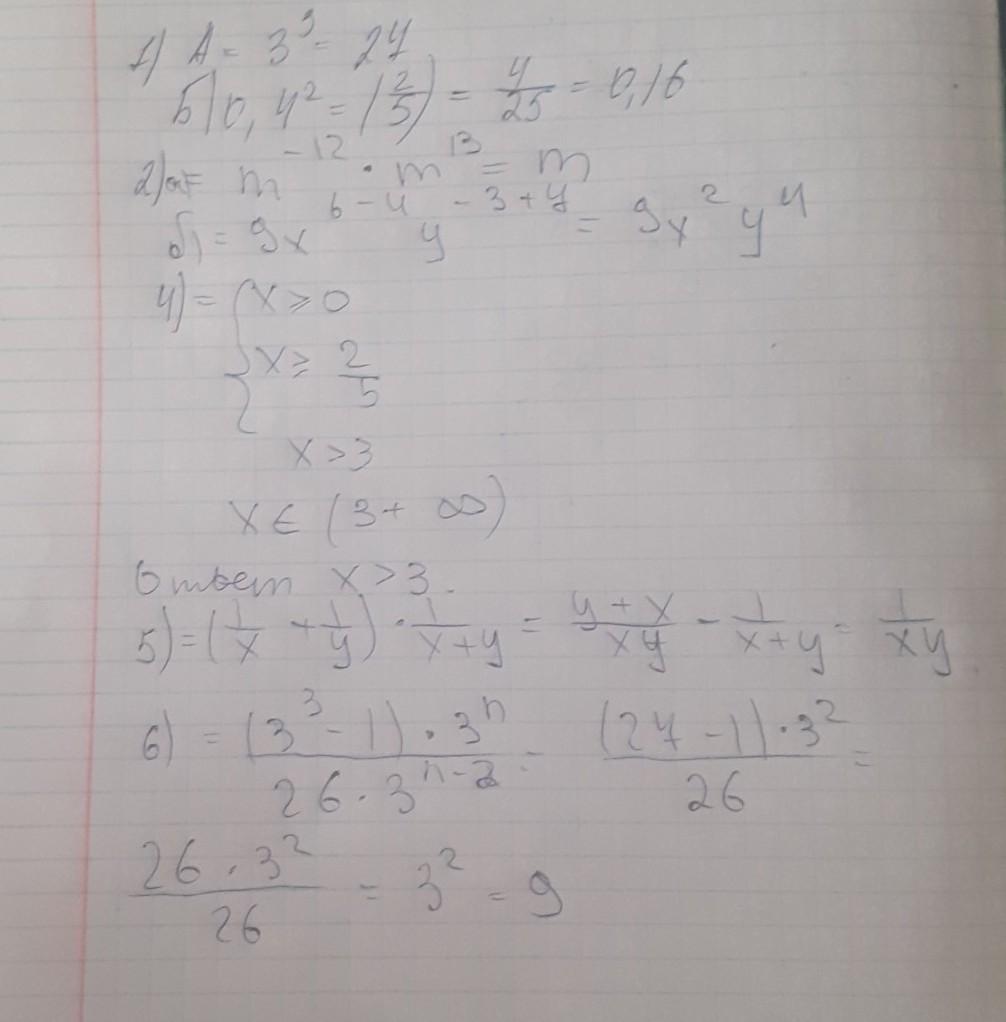 1) A = 3³ = 27
Б) 0,4² = (2/5) = 4/25 = 0,16
2) a = m⁻¹² · m¹³ = m
б) = 9x⁶⁻⁴ y⁻³⁺⁷ = 9x² y⁴
4) = { x ≥ 0
x ≥ 2/5
x > 3
x ∈ (3 + ∞)
Ответ x > 3.
5) = (1/x + 1/y) · 1/(x+y) = (y + x)/(xy) - 1/(x+y) = 1/(xy)
6) = ((3³ - 1) · 3ⁿ)/(26 · 3ⁿ⁻²) = ((27 - 1) · 3²)/26 =
(26 · 3²)/26 = 3² = 9